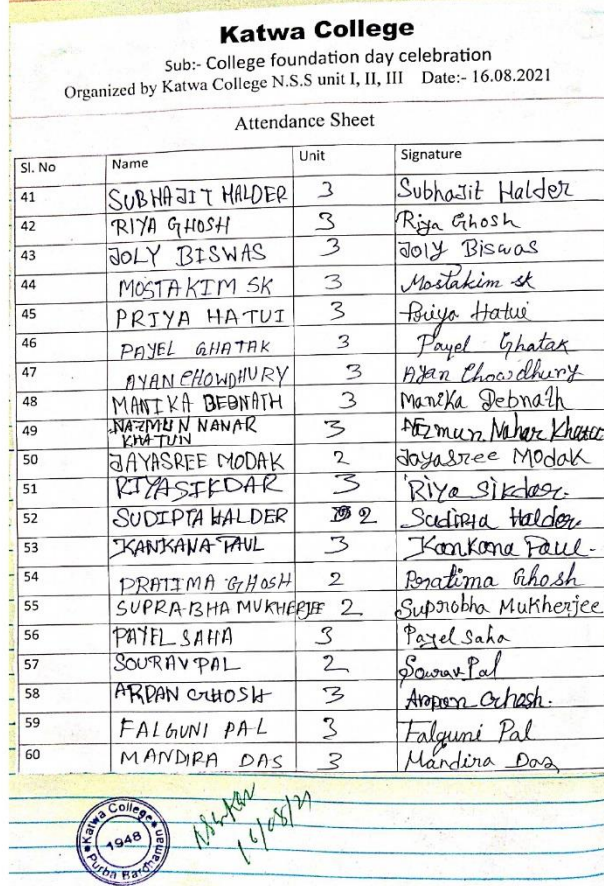 Katwa College
Sub:- College foundation day celebration
Organized by Katwa College N.S.S unit I, II, III Date:- 16.08.2021
Attendance Sheet
Sl. No Name Unit Signature
41 SUBHAJIT HALDER 3 Subhajit Halder
42 RIYA GHOSH 3 Riya Ghosh
43 JOLY BISWAS 3 JOlY Biswas
44 MOSTAKIM SK 3 Mostakim sk
45 PRIYA HATUI 3 Priya Hatui
46 PAYEL GHATAK 3 Payel Ghatak
47 AYAN CHOWDHURY 3 Ayan Chowdhury
48 MANIKA DEBNATH 3 Manika Debnath
49 NAZMUN NAHAR 3 Nazmun Nahar Khatun
KHATUN
50 JAYASREE MODAK 2 Jayasree Modak
51 RIYA SIKDAR 3 Riya Sikdar.
52 SUDIPTA HALDER 2 Sudipta Halder.
53 KANKANA PAUL 3 Kankana Paul.
54 PRATIMA GHOSH 2 Pratima Ghosh
55 SUPRABHA MUKHERJEE 2 Suprobha Mukherjee
56 PAYEL SAHA 3 Payel Saha
57 SOURAV PAL 2 Sourav Pal
58 ARPAN GHOSH 3 Arpan Ghosh.
59 FALGUNI PAL 3 Falguni Pal
60 MANDIRA DAS 3 Mandira Das
Katwa College
1948
Purba Bardhaman
16/08/21